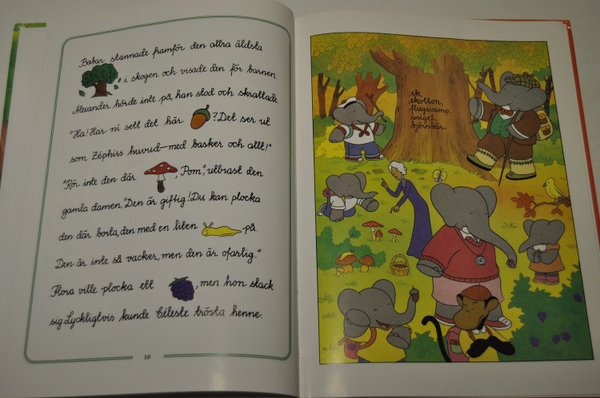 Babar stannade framför den allra äldsta
i skogen och visade den för barnen.
Alexander hörde inte på, han stod och skrattade.
"Ha! Har ni sett det här ? Det ser ut
som Zéphirs huvud – med basker och allt!"
"Rör inte den där Pom", utbrast den
gamla damen. "Den är giftig! Du kan plocka
den där borta, den med en liten på.
Den är inte så vacker, men den är ofarlig."
Flora ville plocka ett , men hon stack
sig. Lyckligtvis kunde Céleste trösta henne.
10
ek,
ekollon,
flugsvamp,
snigel,
björnbär.